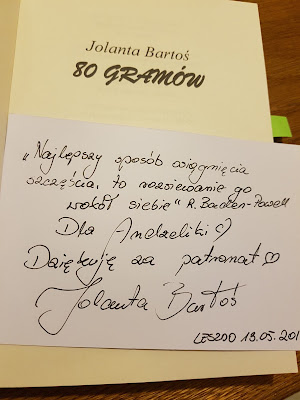 Jolanta Bartoś
80 GRAMÓW
„Najlepszy sposób osiągnięcia
szczęścia, to rozsiewanie go
wokół siebie" R. Baden-Powell
Dla Andzeliki
Dziękuję za patronat
Jolanta Bartoś
LESZNO 13.05.201